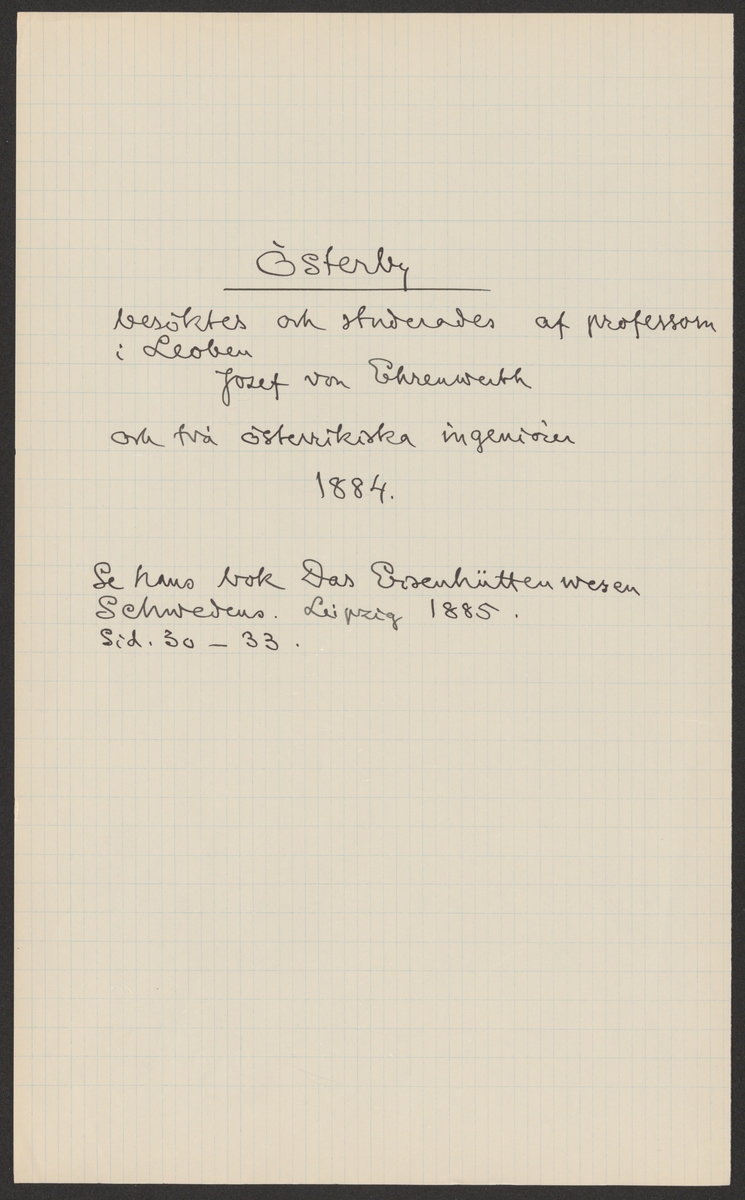 Österby
besöktes och studerades af professorn
i Leoben
Josef von Ehrenwerth
och två österrikiska ingeniörer
1884.
Se hans bok Das Eisenhüttenwesen
Schwedens. Leipzig 1885.
Sid. 30 – 33.